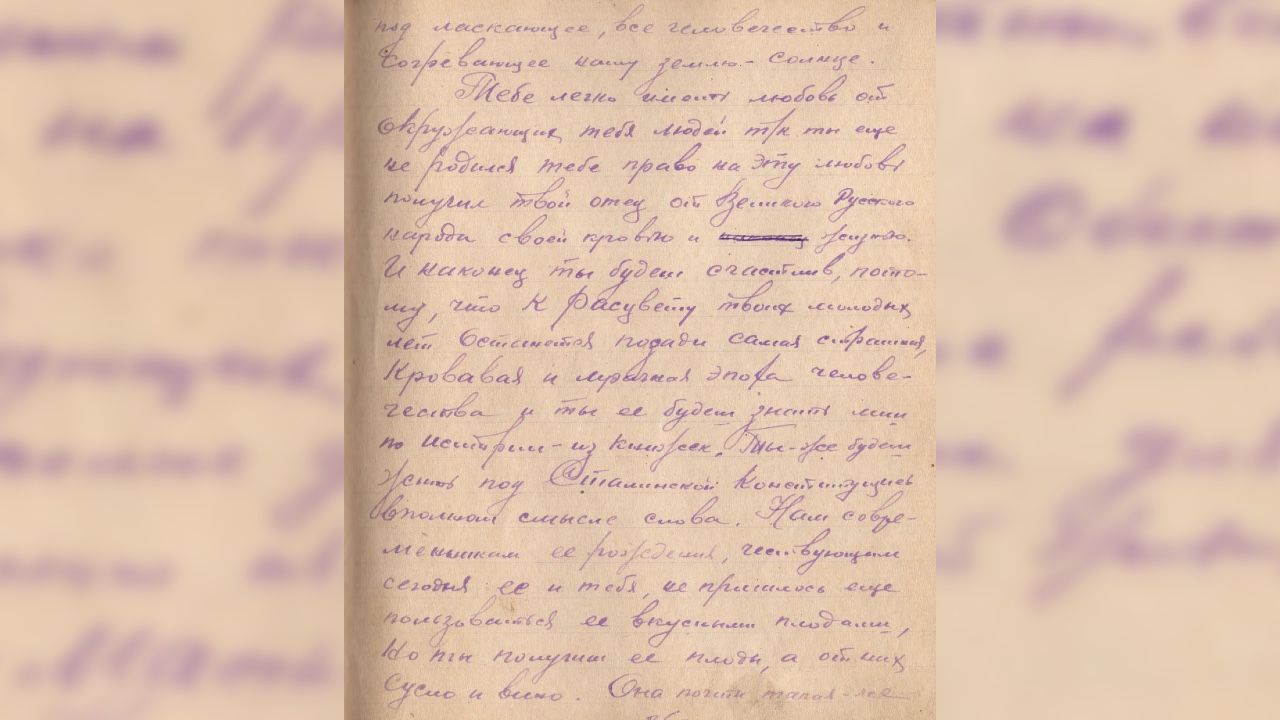 под ласкающее, все человечество и
согревающее нашу землю - солнце.
Тебе легко иметь любовь от
окружающих тебя людей т/к ты еще
не родился тебе право на эту любовь
получил твой отец от Великого Русского
народа своей кровью и жизнью.
И наконец ты будеш счастлив, пото-
му, что к расцвету твоих молодых
лет останется позади самая страшная,
кровавая и мрачная эпоха челове-
чества и ты ее будеш знать лиш
по истории - из книжек. Ты-же будеш
жить под Сталинской Конституциеь
вполном смысле слова. Нам совре-
менникам ее рождения, чествующим
сегодня ее и тебя, не пришлось еще
пользоваться ее вкусными плодами,
но ты получиш ее плоды, а от них
сусло и вино. Она почти такая-же